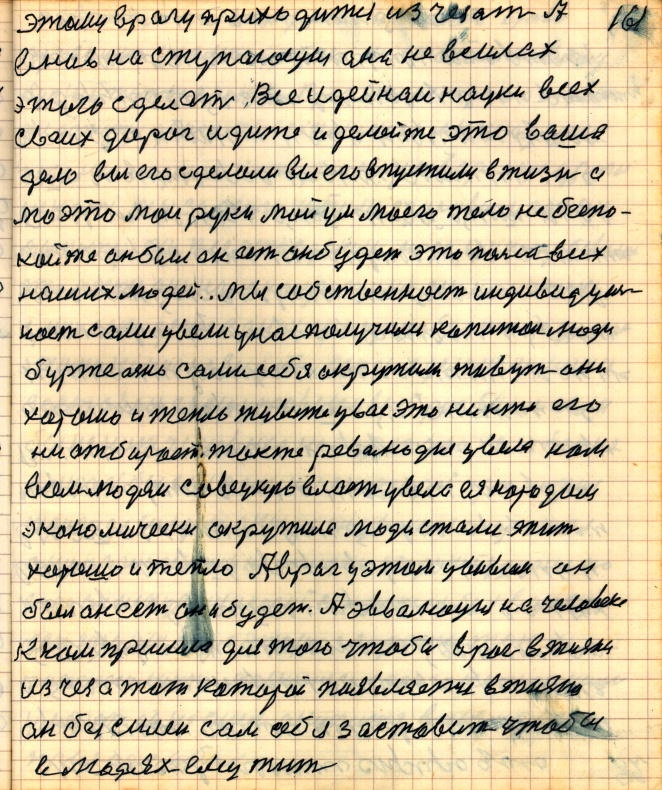 этому врагу приходитси из чезат А 161
внив наступающии она не всилах
этого сделат, Все идейнаи науки всех
своих дорог идите и делайте это ваша
дело вы его сделали вы его впустили в жизн а
мо это мои руки мой ум моего тело не беспо-
койте он был он ест он будет это поле всех
наших людей.. Мы собственност индивидуал-
ност сами увели у нас получили капитал люди
буржеазнь сами себя окружили живут они
хорошо и тепль живите увас это ни кто его
ни отбирает. также револьдие увела нам
всем людям совецкую власт увела ея народом
экономически окружила люди стали жит
хорошо и тепло А враг у этом увивал он
был он ест он и будет. А эвалюция на человека
К нам пришла для того чтобы враг в жизни
из чезатот которой появляетси в жизни
он бы силен сам себя заставит чтобы
в людях ему жит